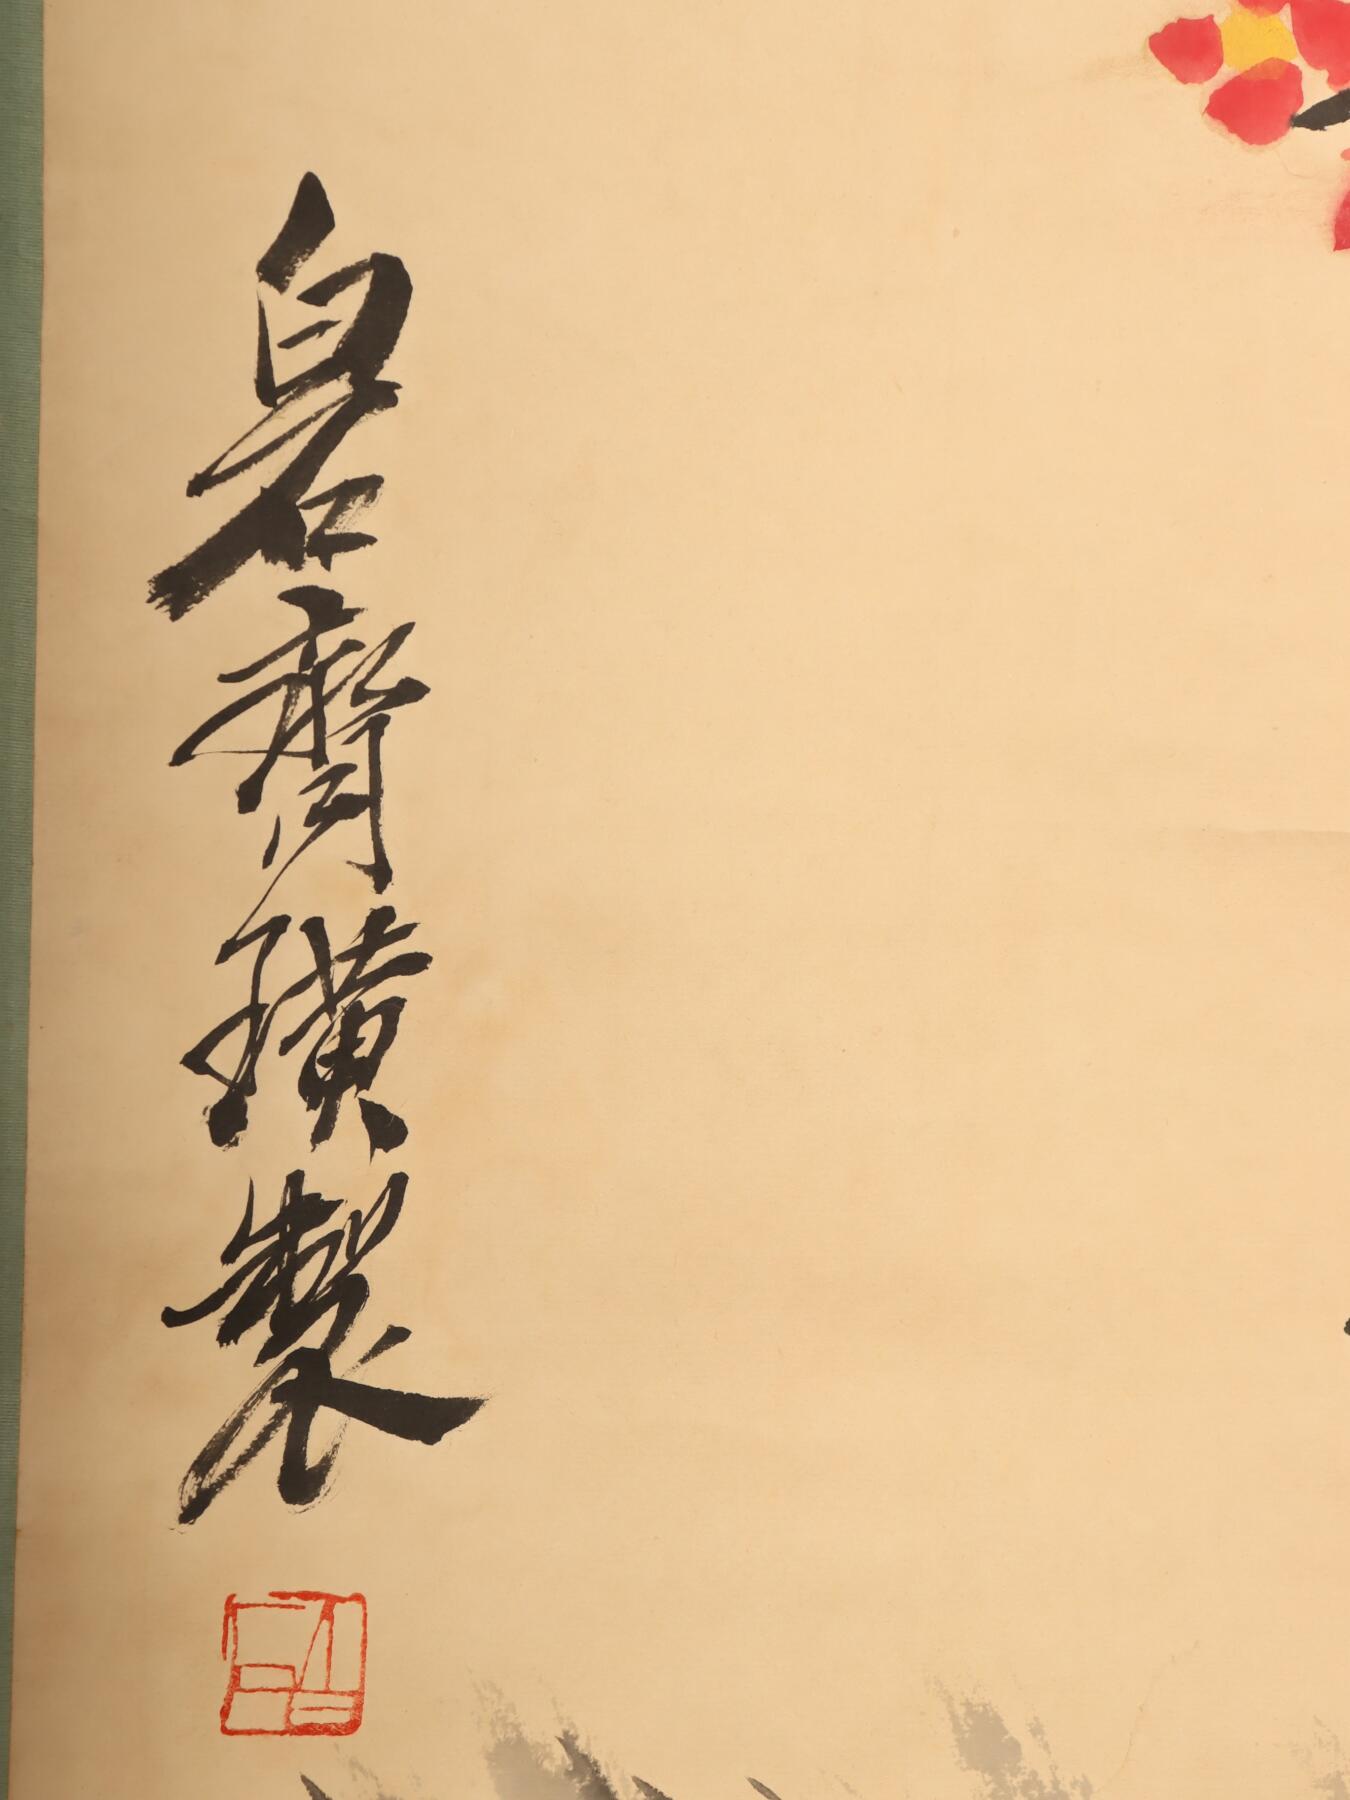 白石齊璜製
白石